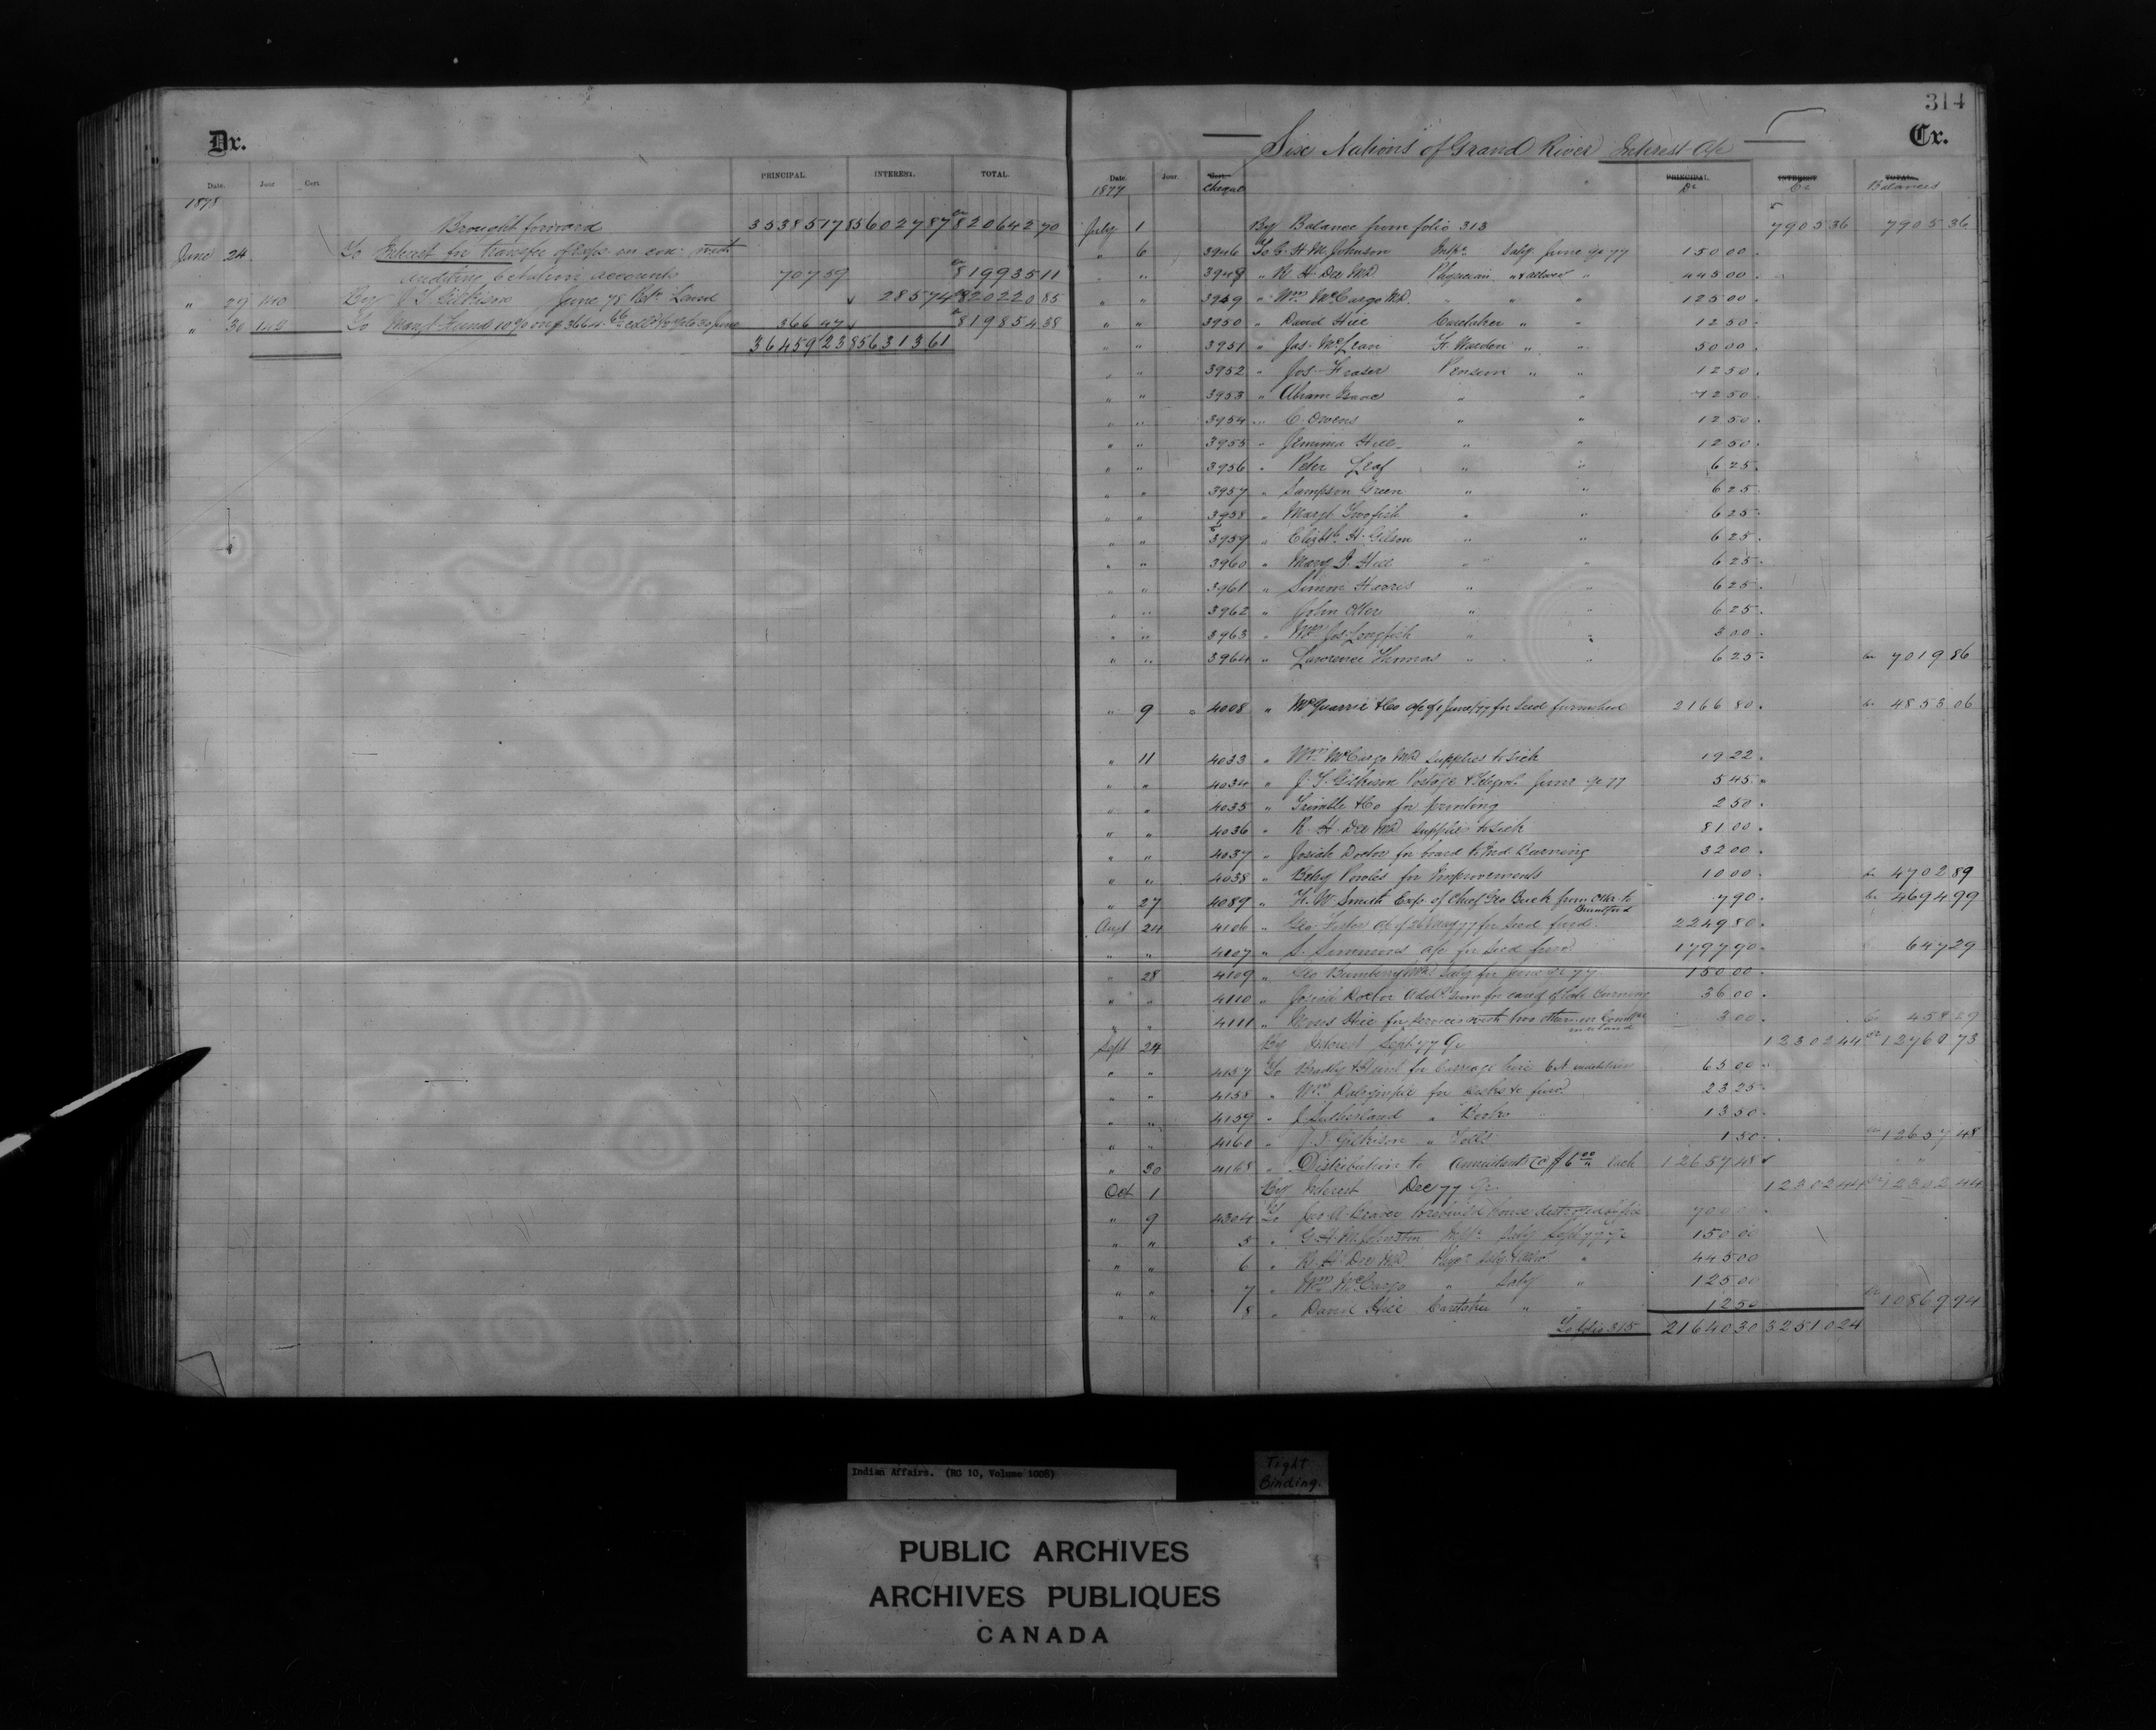 Dr.
Date. Jour Cert PRINCIPAL. INTEREST. TOTAL.
1878
Brought forward 35385178 5602787 82064270
June 24 To Interest for transfer of
auditing between accounts 70759 81993511
" 27 140 By J T Gilkison June 78 Land 28574 82022085
" 30 149 To Mangt Fund 10% on $3664.66 to 30 June 36647 81985438
36459238 5631361
314
Six Nations of Grand River Interest A/c
Cr.
Date. Jour. Cert. Cheque PRINCIPAL. Dr INTEREST Cr TOTAL. Balances
1877
July 1 By Balance from folio 313 790536 790536
" 6 3946 To G. H. M. Johnson Salry June qr 77 15000
" " 3948 " R H Dee MD Physician " & allow " 44500
" " 3949 " Wm McCargo MD. " " " 12500
" " 3950 " David Hill Caretaker " " 1250
" " 3951 " Jas. McLean F. Warden " " 5000
" " 3952 " Jos. Fraser Pension " " 1250
" " 3953 " Abram Isaac " " 1250
" " 3954 " C. Owens " " 1250
" " 3955 " Jemima Hill " " 1250
" " 3956 " Peter Leaf " " 625
" " 3957 " Sampson Green " " 625
" " 3958 " Margt Twofish " " 625
" " 3959 " Elizbth H. Gilson " " 625
" " 3960 " Mary J. Hill " " 625
" " 3961 " Simon Harris " " 625
" " 3962 " John Otter " " 625
" " 3963 " Mrs Jos Longfish " " 300
" " 3964 " Lawrence Thomas " " 625 701986
" 9 4008 " McQuarrie & Co a/c of June/77 for seed furnished 216680 485306
" 11 4033 " Wm McCargo MD supplies to sick 1922
" " 4034 " J. T. Gilkison Postage & Telegrh June qr 77 545
" " 4035 " Trimble & Co for printing 250
" " 4036 " R. H. Dee MD supplies to sick 8100
" " 4037 " Josiah Doctor for board to Burning 3200
" " 4038 " Betsy Powles for Improvements 1000 470289
" 27 4089 " H. W Smith Exp. of Chief Geo Buck from Otta. to
Brantford 790 469499
Augt 24 4106 " Geo. Foster a/c of for seed furnd. 224980
" " 4107 " S. Simmons a/c for seed furnd 179790 64729
" 28 4109 " Geo Bumberry Md Salry for June qr 77 15000
" " 4110 " Josiah Doctor Addl sum for care of late Burning 3600
" " 4111 " Moses Hill for services with two others
on land 300 45829
Sept 24 By Interest Sept 77 Qr 1230244 1276073
" " 4157 To Bradley & Hunt for Carriage hire 6500
" " 4158 " Wm Dalrymple for desks &c furnd 2325
" " 4159 " J Sutherland " Books 1350
" " 4160 " J. T. Gilkison " Tolls 150 1265748
" 30 4168 " Distribution to Annuitants @ $6.00 each 1265748 " "
Oct 1 By Interest Dec 77 Qr 1230244 1230244
" 9 4304 To Jno A. Beaver to rebuild house destroyed by fire 70000
" " 5 " G. H. M. Johnston Salry Sept 77 qr 15000
" " 6 " R. H. Dee MD Phys. Salry & allow " 44500
" " 7 " Wm McCargo " Salry " 12500
" " 8 " David Hill Caretaker " " 1250 1086994
To folio 315 2164030 3251024
Indian Affairs. (RG 10, Volume 1008)
Tight
Binding.
PUBLIC ARCHIVES
ARCHIVES PUBLIQUES
CANADA